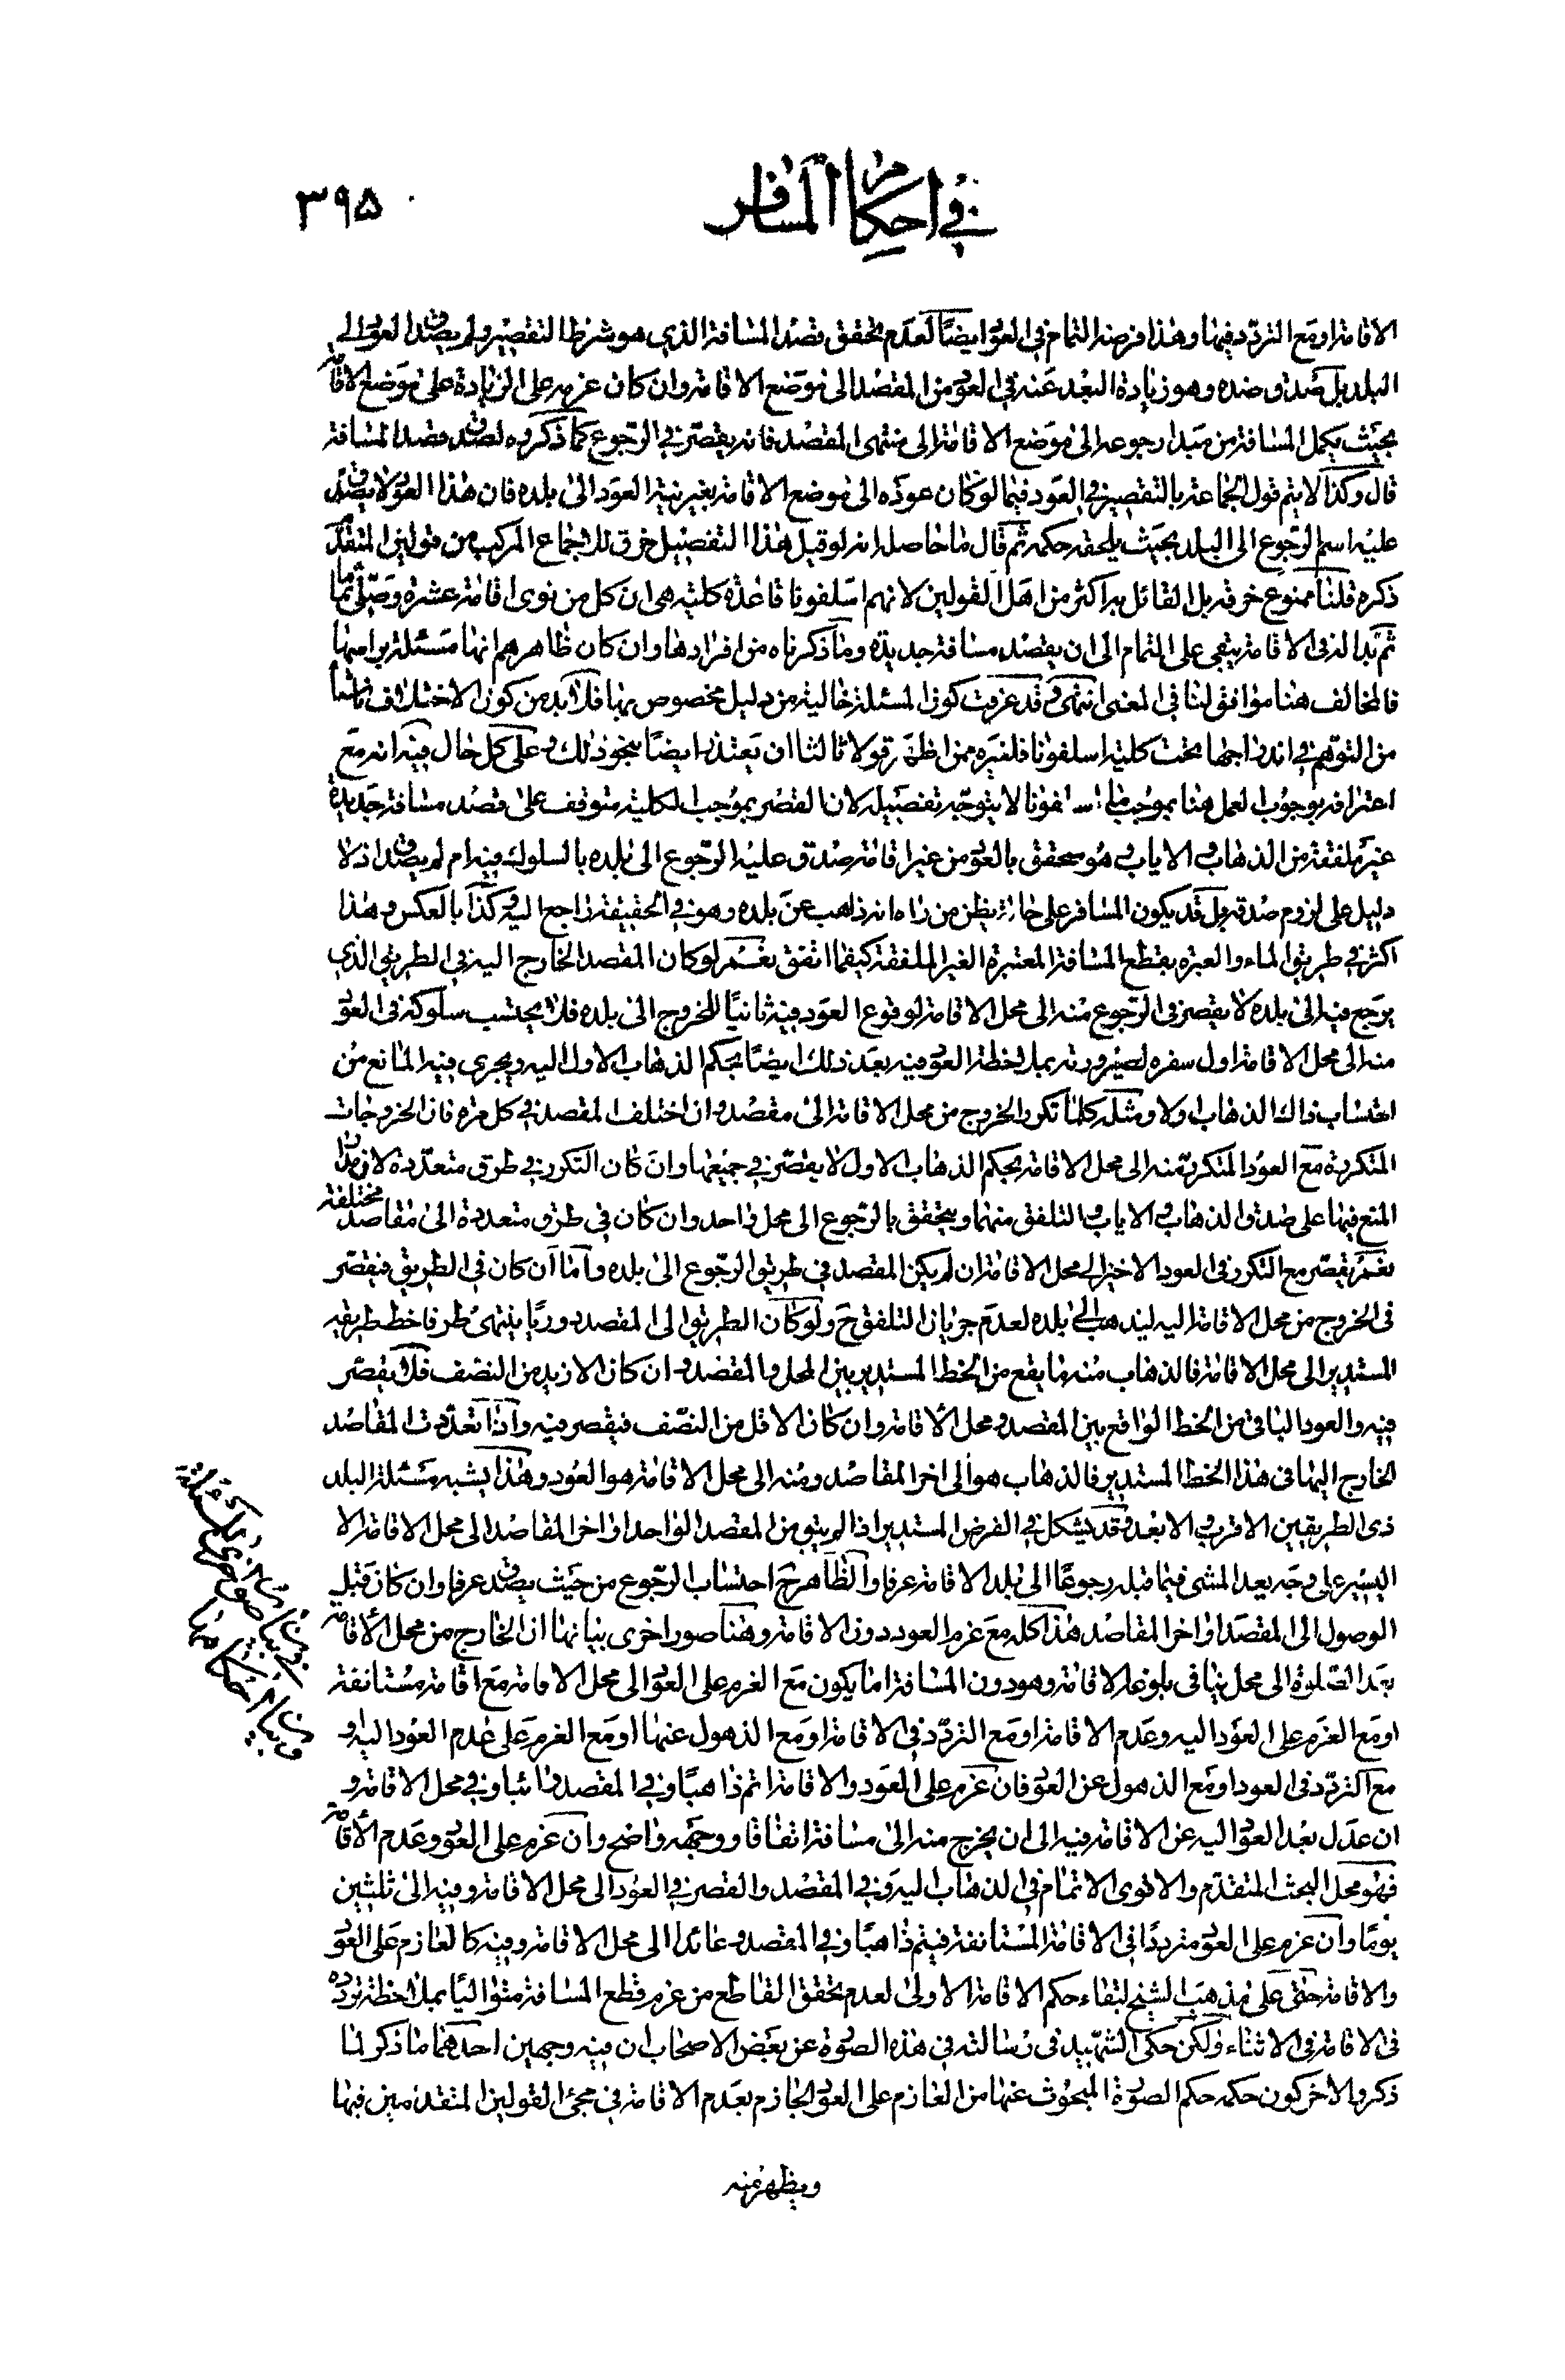 في احكام المسافر
٣٩٥
الاقامة او مع التردد فيها وهذا فرضه التمام في العود ايضا لعدم تحقق قصد المسافة الذي هو شرط التقصير ولم يصدق العود الى
البلد بل صدق ضده وهو زيادة البعد عنه في العود من المقصد الى موضع الاقامة وان كان عزمه على الزيادة على موضع الاقامة
بحيث يكمل المسافة من مبدا رجوعه الى موضع الاقامة الى منتهى المقصد فانه يقصر في الرجوع كما ذكروه لصدق قصد المسافة
قال وكذا لا يتم قول الجماعة بالتقصير في العود فيما لو كان عوده الى موضع الاقامة بغير نية العود الى بلده فان هذا العود لا يصدق
عليه اسم الرجوع الى البلد بحيث يلحقه حكمه ثم قال ما حاصله انه لو قيل هذا التفصيل خرق للاجماع المركب من قولين المتقدم
ذكره قلنا ممنوع خرقه بل القائل به اكثر من اهل القولين لانهم اسلفونا قاعدة كلية هي ان كل من نوى اقامة عشرة وصلى تماما
ثم بدا له في الاقامة يبقى على التمام الى ان يقصد مسافة جديدة وما ذكرناه من افرادها وان كان ظاهرهم انها مسئلة براسها
فالمخالف هنا موافق لنا في المعنى انتهى وقد عرفت كون المسئلة خالية من دليل مخصوص بها فلا بد من كون الاختلاف ناشئا
من التوهم في اندراجها تحت كلية اسلفونا فلغيره ممن اظهر قولا ثالثا ان يعتذر ايضا بنحو ذلك وعلى كل حال فيه انه مع
اعترافه بوجوب العمل هنا بموجب ما اسلفونا لا يتوجه تفصيله لان القصر بموجب الكلية متوقف على قصد مسافة جديدة
غير ملفقة من الذهاب والاياب وهو يتحقق بالعود من غير اقامة صدق عليه الرجوع الى بلده بالسلوك فيه ام لم يصدق اذ لا
دليل على لزوم صدقه بل قد يكون المسافر على حالة يظن من راه انه ذاهب عن بلده وهو في الحقيقة راجع اليه وكذا بالعكس وهذا
اكثر في طريق الماء والعبرة بقطع المسافة المعتبرة الغير الملفقة كيفما اتفق نعم لو كان المقصد الخارج اليه في الطريق الذي
يرجع فيه الى بلده لا يقصر في الرجوع منه الى محل الاقامة لوقوع العود فيه ثانيا للخروج الى بلده فلا يحتسب سلوكه في العود
منه الى محل الاقامة اول سفره لصيرورته بملاحظة العود فيه بعد ذلك ايضا بحكم الذهاب الاول اليه ويجري فيه المانع من
احتساب ذاك الذهاب اولا ومثله كلما تكرر الخروج من محل الاقامة الى مقصد وان اختلف المقصد في كل مرة فان الخروجات
المتكررة مع العود المتكرر منه الى محل الاقامة بحكم الذهاب الاول لا يقصر في جميعها وان كان التكرر في طرق متعددة لان مدار
المنع فيها على صدق الذهاب والاياب والتلفق منهما ويتحقق بالرجوع الى محل واحد وان كان في طرق متعددة الى مقاصد مختلفة
نعم يقصر مع التكرر في العود الاخير الى محل الاقامة ان لم يكن المقصد في طريق الرجوع الى بلده واما ان كان في الطريق فيقصر
في الخروج من محل الاقامة اليه ليذهب الى بلده لعدم جريان التلفق ح ولو كان الطريق الى المقصد دوريا ينتهى طرفا خط طريقه
المستدير الى محل الاقامة فالذهاب منه ما يقع من الخط المستدير بين المحل والمقصد وان كان الازيد من النصف فلا يقصر
فيه والعود الباقي من الخط الواقع بين المقصد ومحل الاقامة وان كان الاقل من النصف فيقصر فيه واذا تعددت المقاصد
الخارج اليها في هذا الخط المستدير فالذهاب هو الى اخر المقاصد ومنه الى محل الاقامة هو العود وهذا يشبه مسئلة البلد
ذي الطريقين الاقرب والابعد وقد يشكل في الفرض المستدير اذا لم يبق من المقصد الواحد او اخر المقاصد الى محل الاقامة الا
اليسير على وجه يعد المشي فيما قبله رجوعا الى بلد الاقامة عرفا والظاهر ح احتساب الرجوع من حيث يصدق عرفا وان كان قبل
الوصول الى المقصد او اخر المقاصد هذا كله مع عزم العود دون الاقامة وهنا صور اخرى بيانها ان الخارج من محل الاقامة
بعد الصلوة الى محل ينافي بلوغه الاقامة وهو دون المسافة اما يكون مع العزم على العود الى محل الاقامة مع اقامة مستانفة
او مع العزم على العود اليه وعدم الاقامة او مع التردد في الاقامة او مع الذهول عنها او مع العزم على عدم العود اليه او
مع التردد في العود او مع الذهول عن العود فان عزم على العود والاقامة اتم ذاهبا وفي المقصد وائبا وفي محل الاقامة و
ان عدل بعد العود اليه عن الاقامة فيه الى ان يخرج منه الى مسافة اتفاقا ووجهه واضح وان عزم على العود وعدم الاقامة
فهو محل البحث المتقدم والاقوى الاتمام في الذهاب اليه وفي المقصد والقصر في العود الى محل الاقامة وفيه الى ثلثين
يوما وان عزم على العود مترددا في الاقامة المستانفة فيتم ذاهبا وفي المقصد وعائدا الى محل الاقامة وفيه كالعازم على العود
والاقامة حتى على مذهب الشيخ لبقاء حكم الاقامة الاولى لعدم تحقق القاطع من عزم قطع المسافة متواليا بملاحظة تردده
في الاقامة في الاثناء ولكن حكى الشهيد في رسالته في هذه الصورة عن بعض الاصحاب ان فيه وجهين احدهما ما ذكر لما
ذكر والاخر كون حكمه حكم الصورة المبحوث عنها من العازم على العود الجازم بعدم الاقامة في مجئ القولين المتقدمين فيها
ويظهر منه